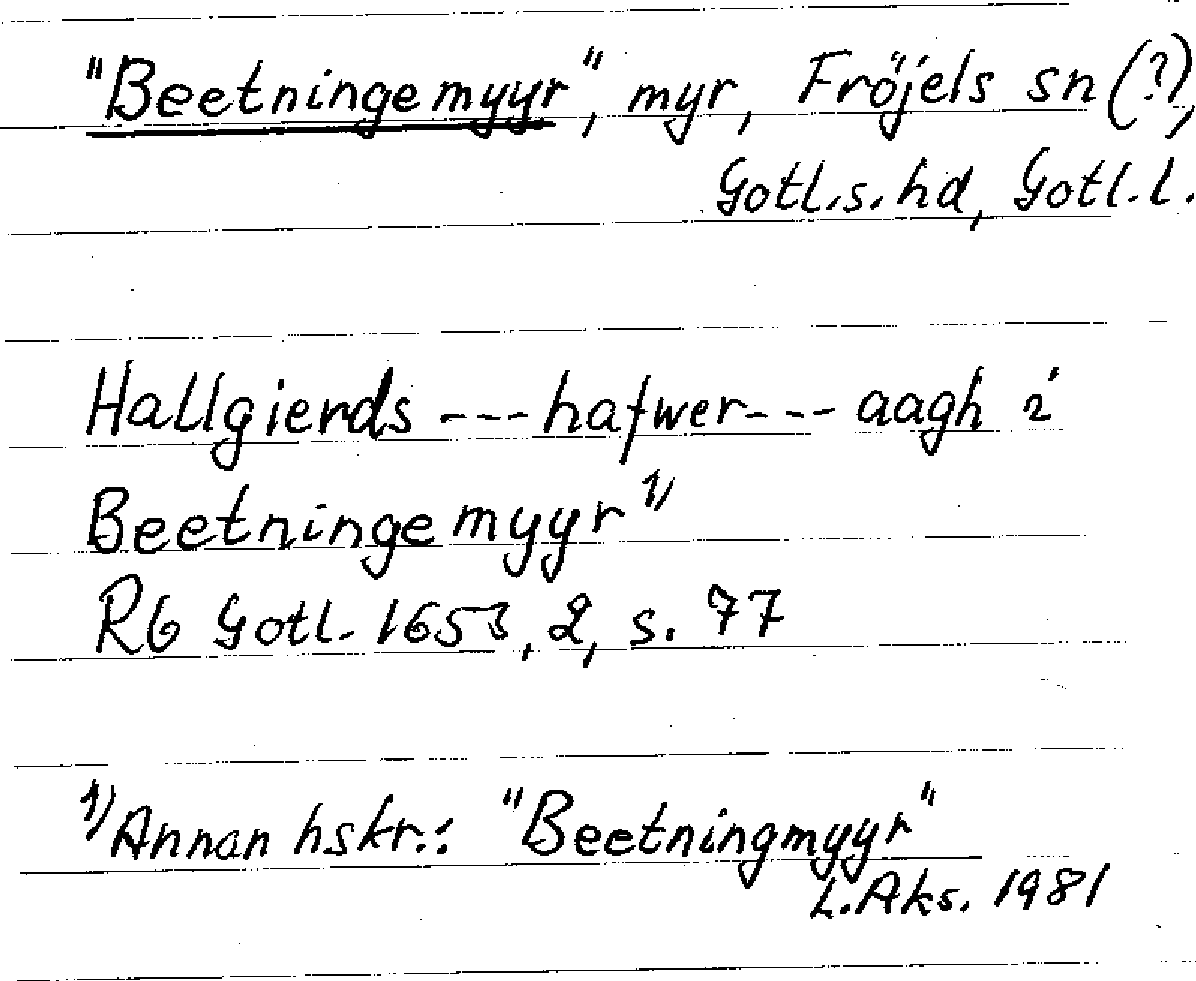 "Beetningemyyr", myr, Fröjels sn (?),
Gotl.s.hd, Gotl.l.
Hallgierds --- hafwer --- aagh i
Beetningemyyr 1)
Rb Gotl. 1653, 2, s. 77
1) Annan hskr.: "Beetningmyyr"
L.Aks. 1981